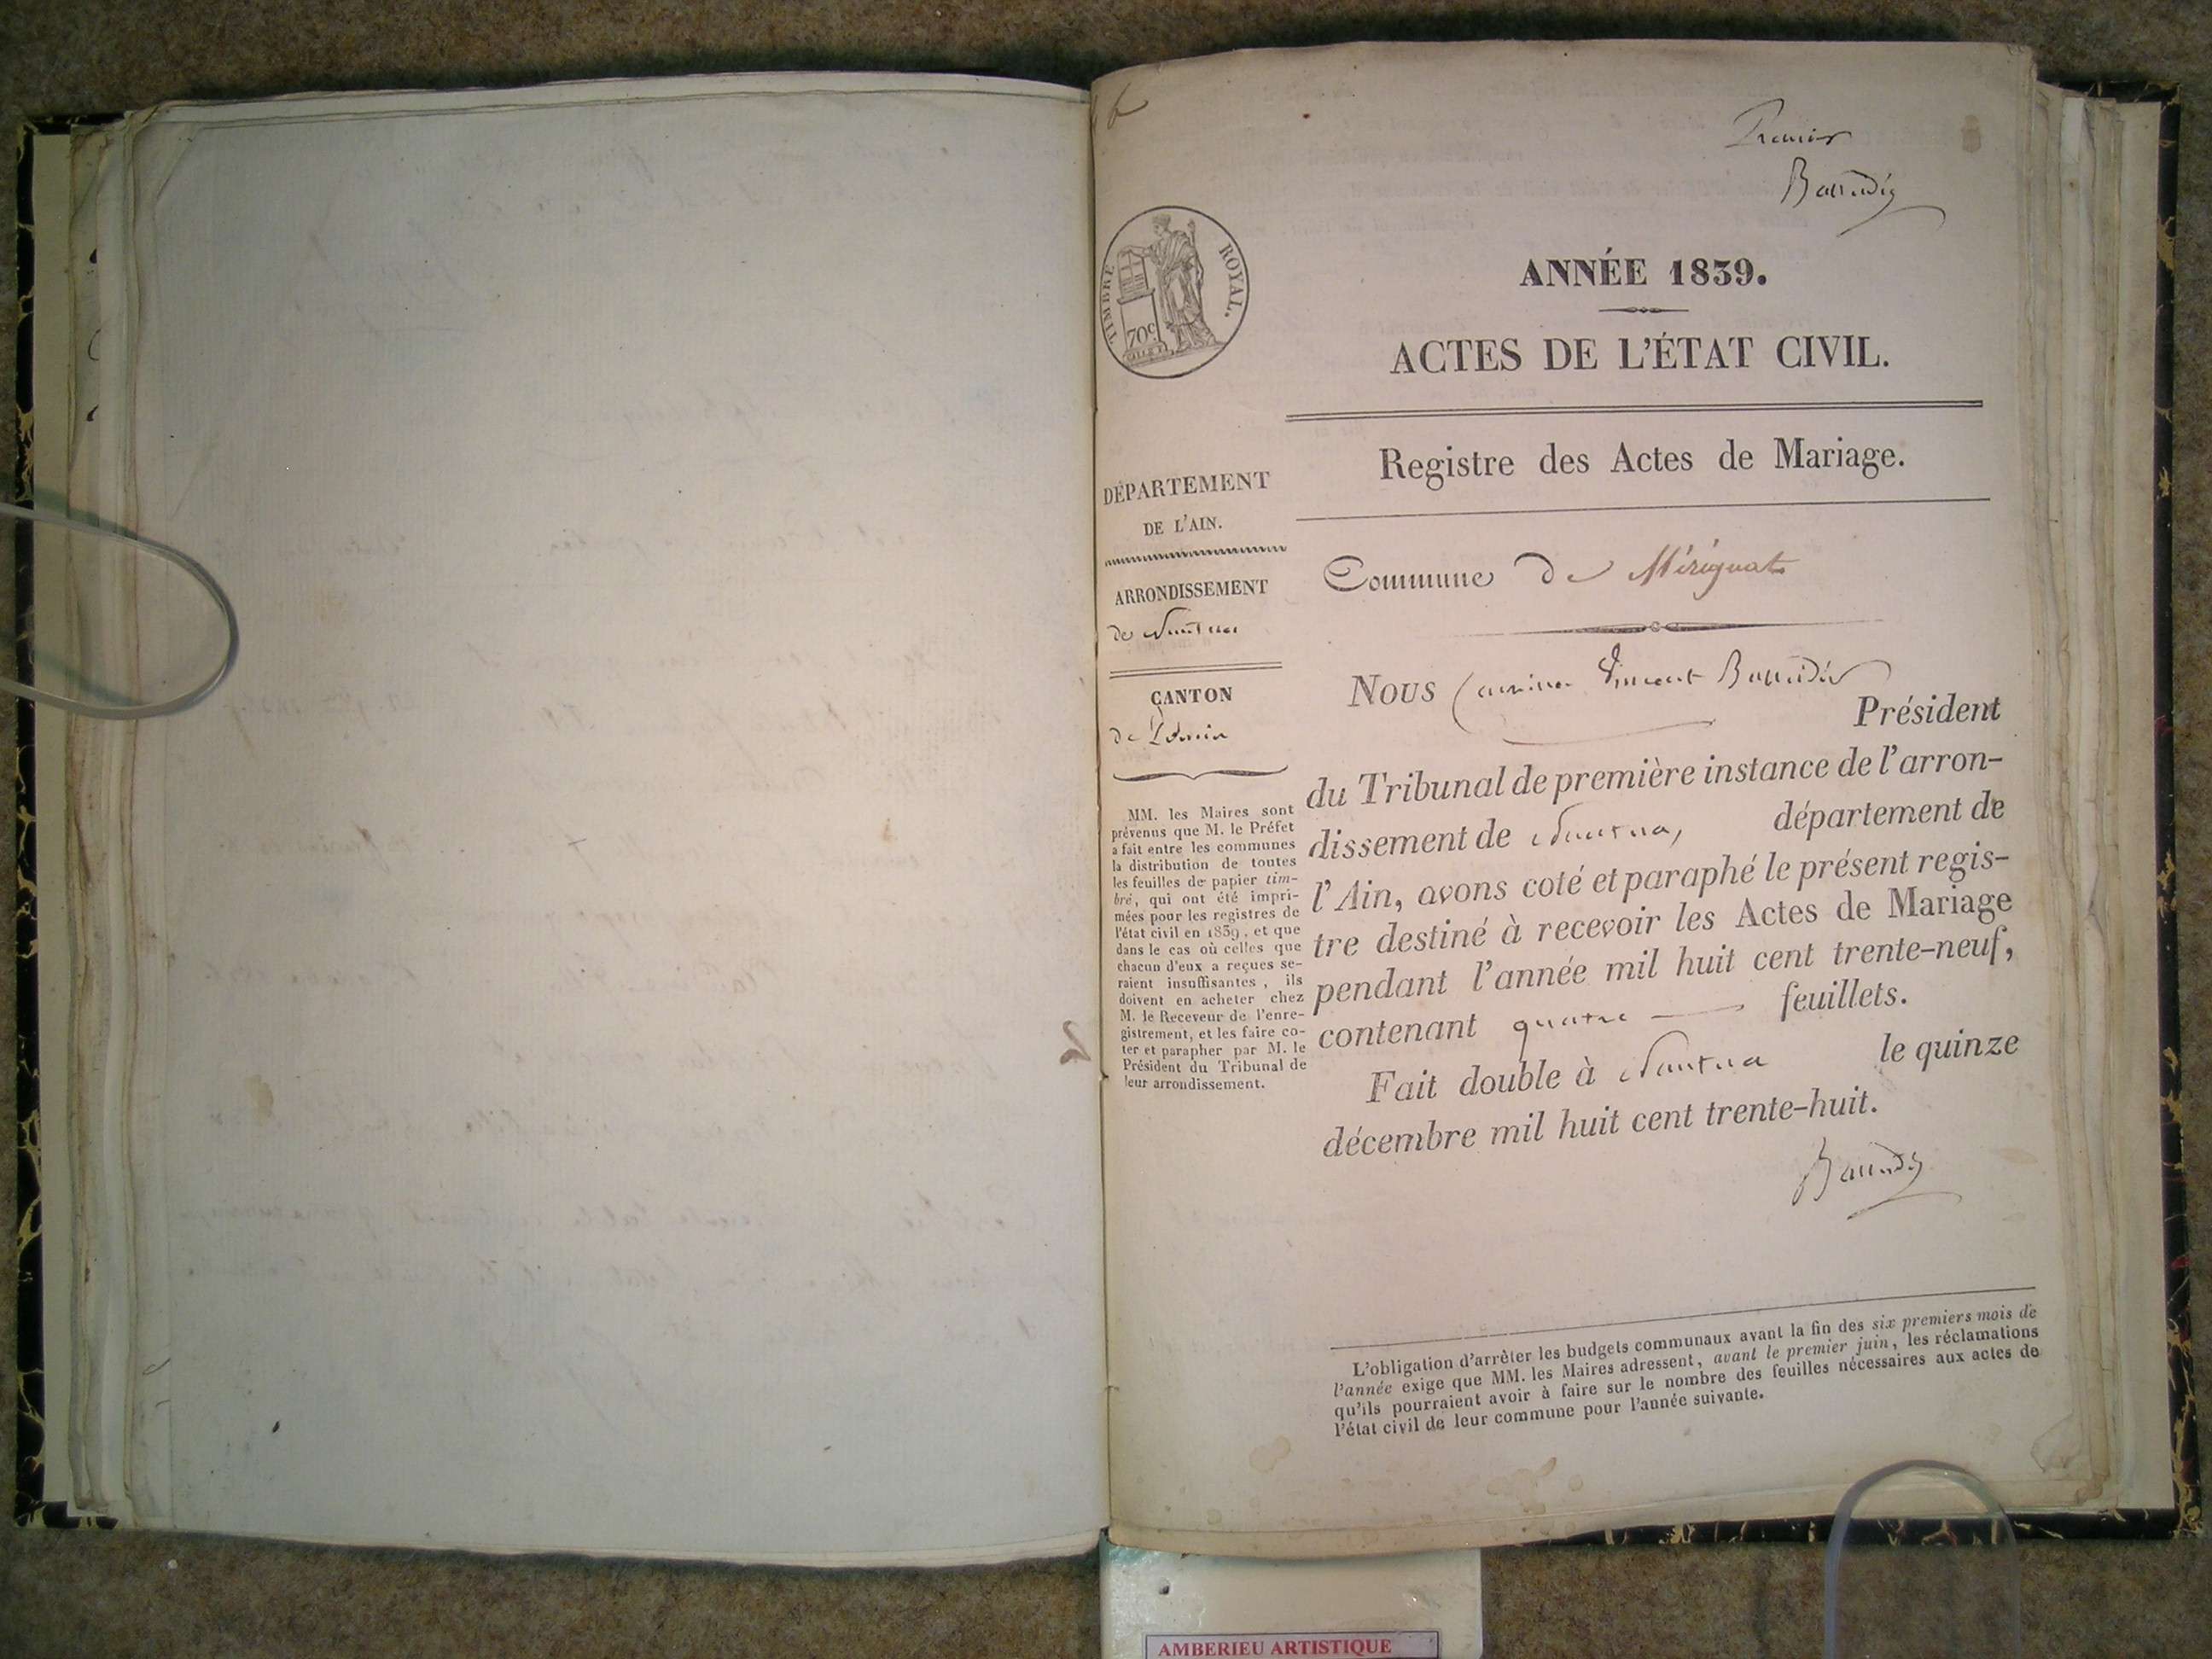 Premier
TIMBRE ROYAL.
70c
ANNÉE 1839.
ACTES DE L'ÉTAT CIVIL.
Registre des Actes de Mariage.
DÉPARTEMENT
DE L'AIN.
ARRONDISSEMENT
de Nantua
CANTON
de Poncin
MM. les Maires sont
prévenus que M. le Préfet
a fait entre les communes
la distribution de toutes
les feuilles de papier tim-
bré, qui ont été impri-
mées pour les registres de
l'état civil en 1839, et que
dans le cas où celles que
chacun d'eux a reçues se-
raient insuffisantes, ils
doivent en acheter chez
M. le Receveur de l'enre-
gistrement, et les faire co-
ter et parapher par M. le
Président du Tribunal de
leur arrondissement.
Commune de Mérignat
Nous Vincent
Président
du Tribunal de première instance de l'arron-
dissement de Nantua, département de
l'Ain, avons coté et paraphé le présent regis-
tre destiné à recevoir les Actes de Mariage
pendant l'année mil huit cent trente-neuf,
contenant quatre feuillets.
Fait double à Nantua le quinze
décembre mil huit cent trente-huit.
L'obligation d'arrêter les budgets communaux avant la fin des six premiers mois de
l'année exige que MM. les Maires adressent, avant le premier juin, les réclamations
qu'ils pourraient avoir à faire sur le nombre des feuilles nécessaires aux actes de
l'état civil de leur commune pour l'année suivante.
AMBERIEU ARTISTIQUE